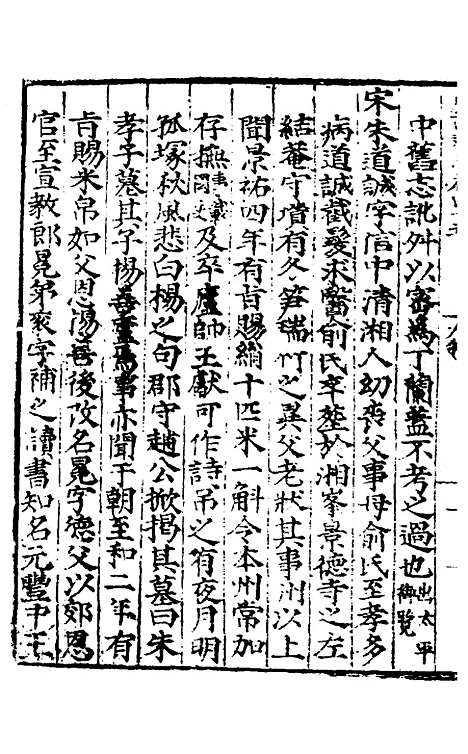 中舊志訛舛以寄為丁蘭蓋不考之過也出太平御覽
宋朱道誠字信中清湘人幼喪父事母俞氏至孝多
病道誠截髮求醫俞氏卒塟於湘峯景德寺之左
結菴守墳有冬笋瑞竹之異父老狀其事州以上
聞景祐四年有旨賜絹十匹米一斛令本州常加
存撫及卒廬帥王獻可作詩吊之有夜月明
孤塚秋風悲白楊之句郡守趙公掀揭其墓曰朱
孝子墓其子楊善亦聞于朝至和二年有
旨賜米帛如父恩湯善後改名冕字德父以郊恩
官至宣教郎冕弟袞字補之讀書知名元豐中王